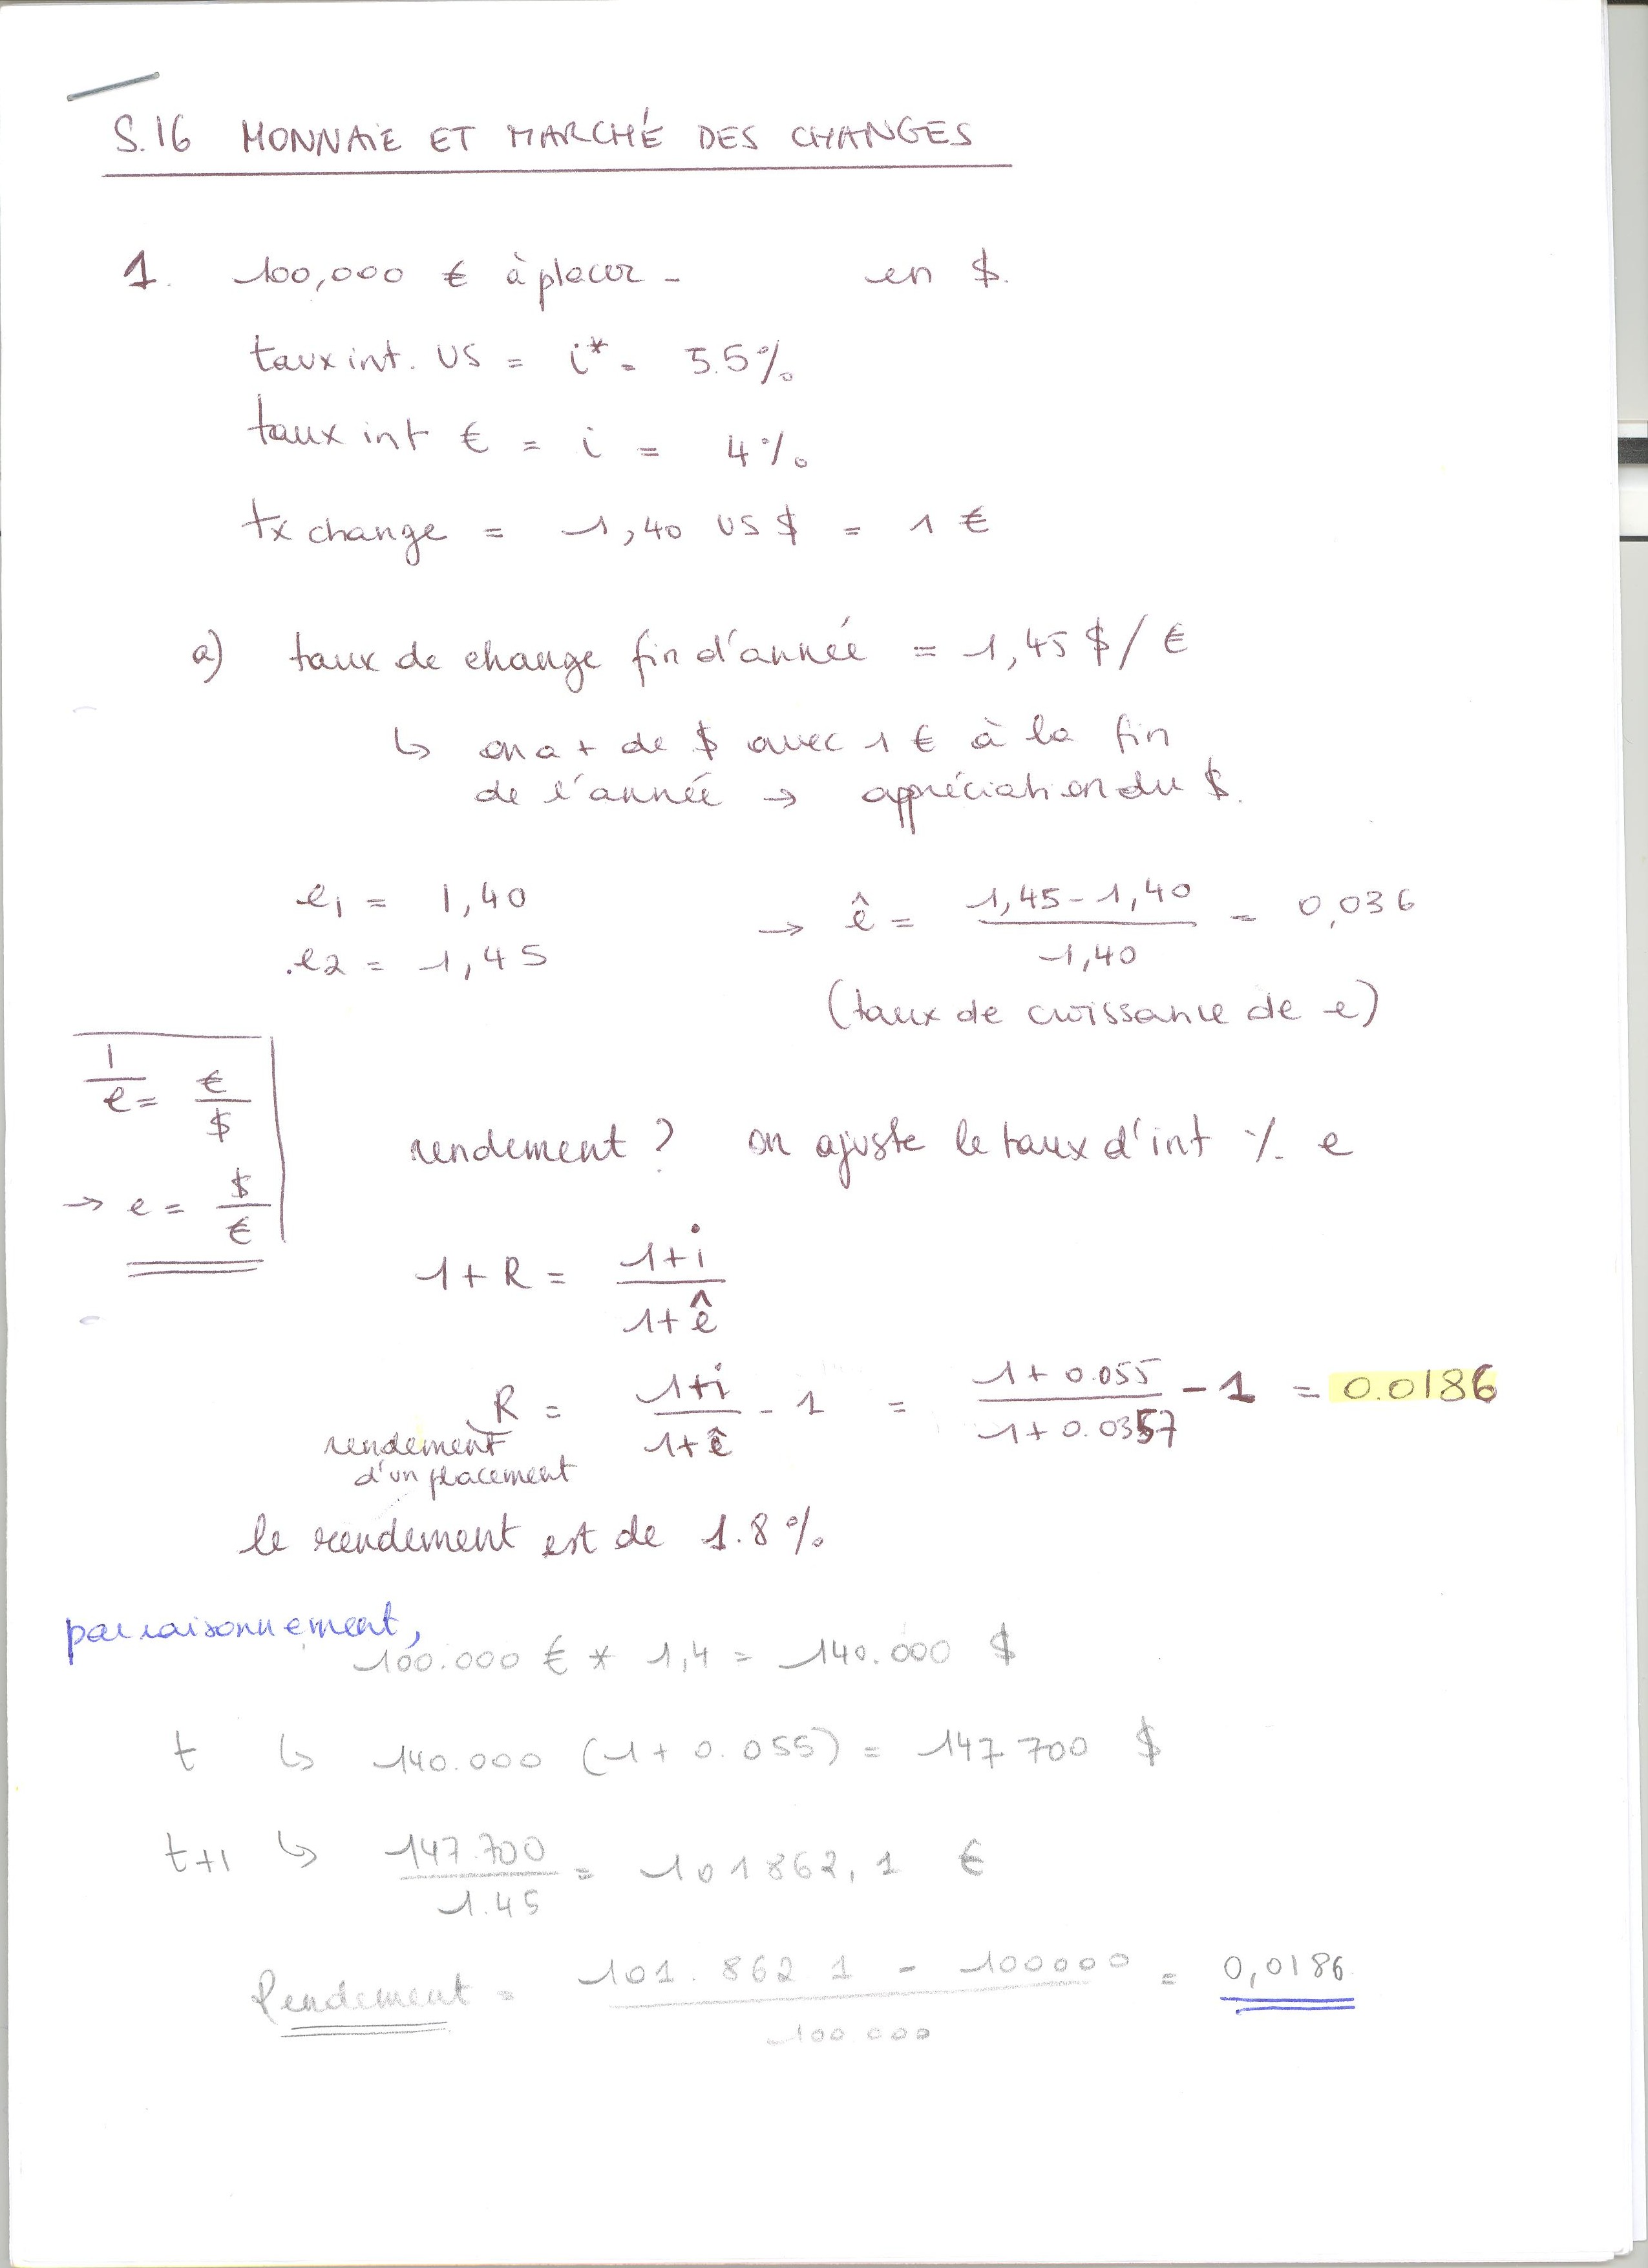 S.16 MONNAIE ET MARCHÉ DES CHANGES
1. 100,000 € à placer - en $.
taux int. US = i* = 5.5%
taux int € = i = 4%
tx change = 1,40 US $ = 1 €
a) taux de change fin d'année = 1,45 $/€
↳ on a + de $ avec 1 € à la fin
de l'année → appréciation du $.
e1 = 1,40 → ê = (1,45 - 1,40) / 1,40 = 0,036
e2 = 1,45
(taux de croissance de e)
1/e = €/$
→ e = $/€
rendement ? on ajuste le taux d'int % e
1 + R = (1+i) / (1+ê)
R = (1+i) / (1+ê) - 1 = (1 + 0.055) / (1 + 0.0357) - 1 = 0.0186
rendement
d'un placement
le rendement est de 1.8%
par raisonnement,
100.000 € * 1,4 = 140.000 $
t ↳ 140.000 (1 + 0.055) = 147.700 $
t+1 ↳ 147.700 / 1.45 = 101862,1 €
Rendement = (101.862 1 - 100000) / 100 000 = 0,0186